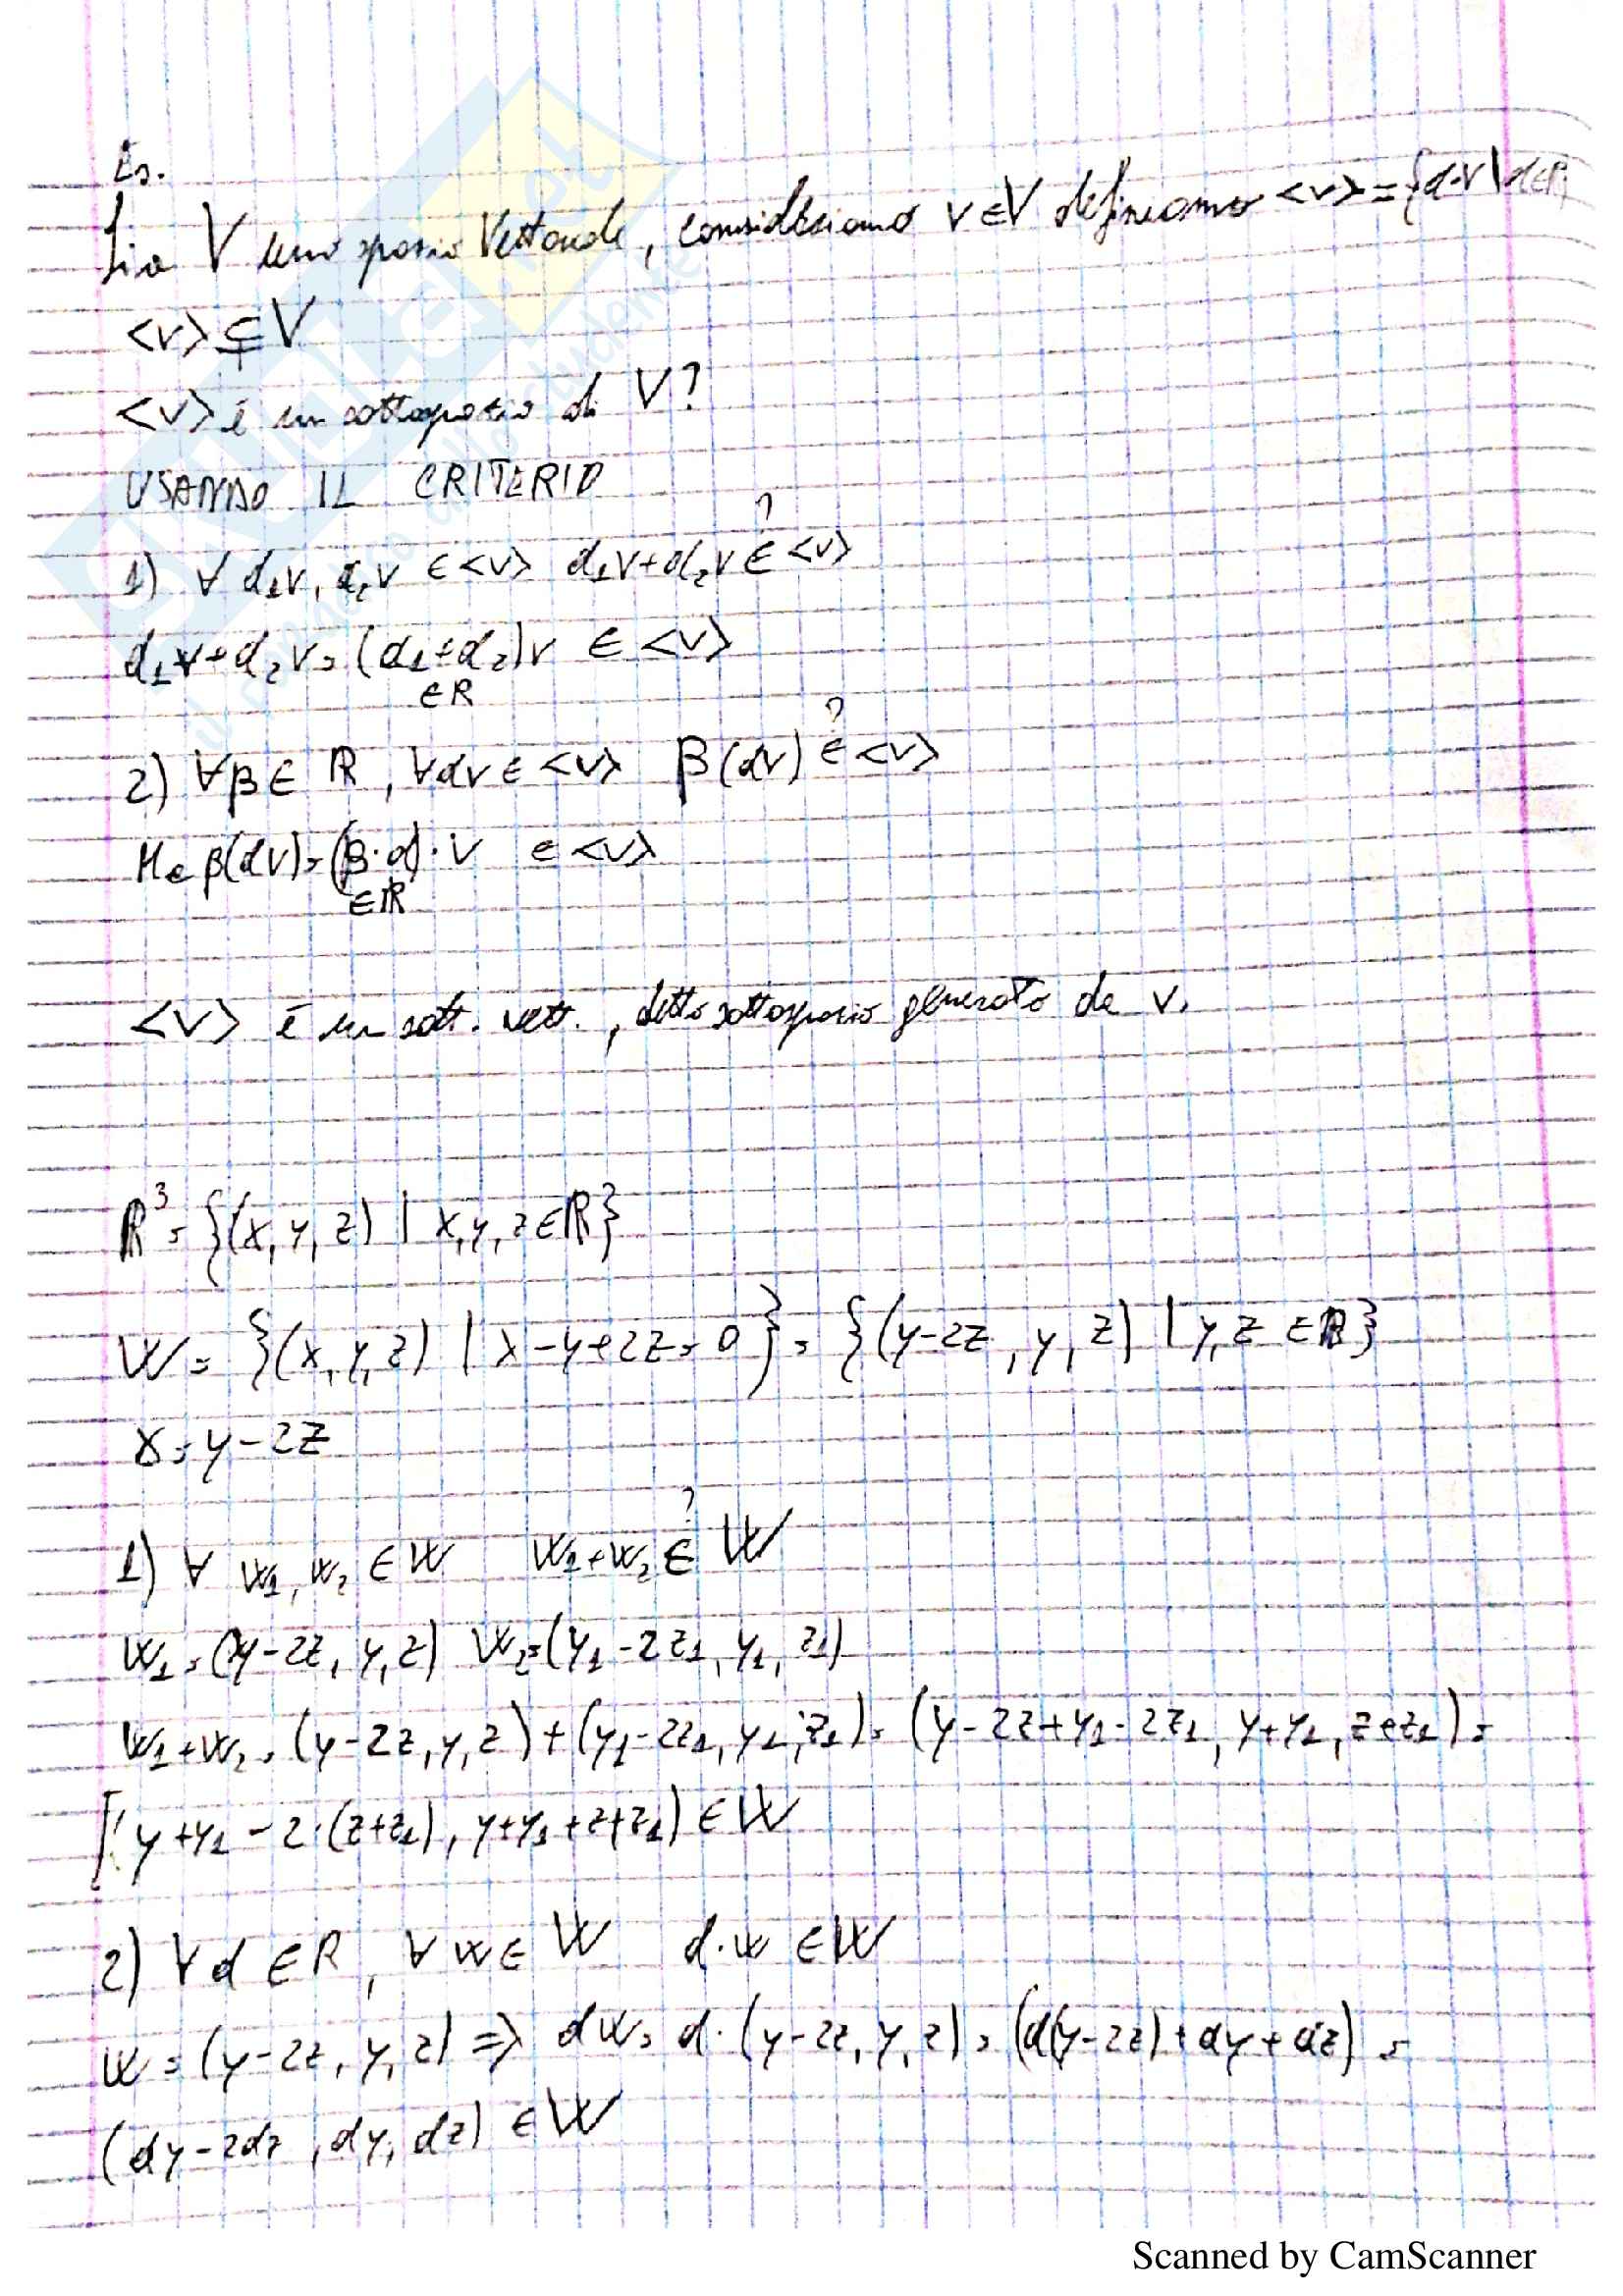 Es.
Sia V uno spazio vettoriale, consideriamo v∈V definiamo <v>={α·v|α∈R}
<v>⊊V
<v> è un sottospazio di V?
USANDO IL CRITERIO
1) ∀ α₁v, α₂v ∈<v> α₁v+α₂v ∈? <v>
α₁v+α₂v=(α₁+α₂)v ∈ <v>
∈R
2) ∀β∈ ℝ, ∀αv∈<v> β(αv) ∈? <v>
Ma β(αv)=(β·α)·v ∈<v>
∈ℝ
<v> è un sott. vett., detto sottospazio generato da v.
ℝ³={(x,y,z) | x,y,z∈ℝ}
W={(x,y,z) | x-y+2z=0}={(y-2z, y, z) | y,z ∈ℝ}
x=y-2z
1) ∀ w₁,w₂ ∈W w₁+w₂ ∈? W
w₁=(y-2z, y, z) w₂=(y₁-2z₁, y₁, z₁)
w₁+w₂=(y-2z,y,z)+(y₁-2z₁,y₁,z₁)=(y-2z+y₁-2z₁, y+y₁, z+z₁)=
(y+y₁-2·(z+z₁), y+y₁+z+z₁)∈W
2) ∀α∈R, ∀w∈W α·w ∈W
w=(y-2z, y, z) => αw=α·(y-2z, y, z)=(α(y-2z)+αy+αz)=
(αy-2αz, αy, αz) ∈W
Scanned by CamScanner